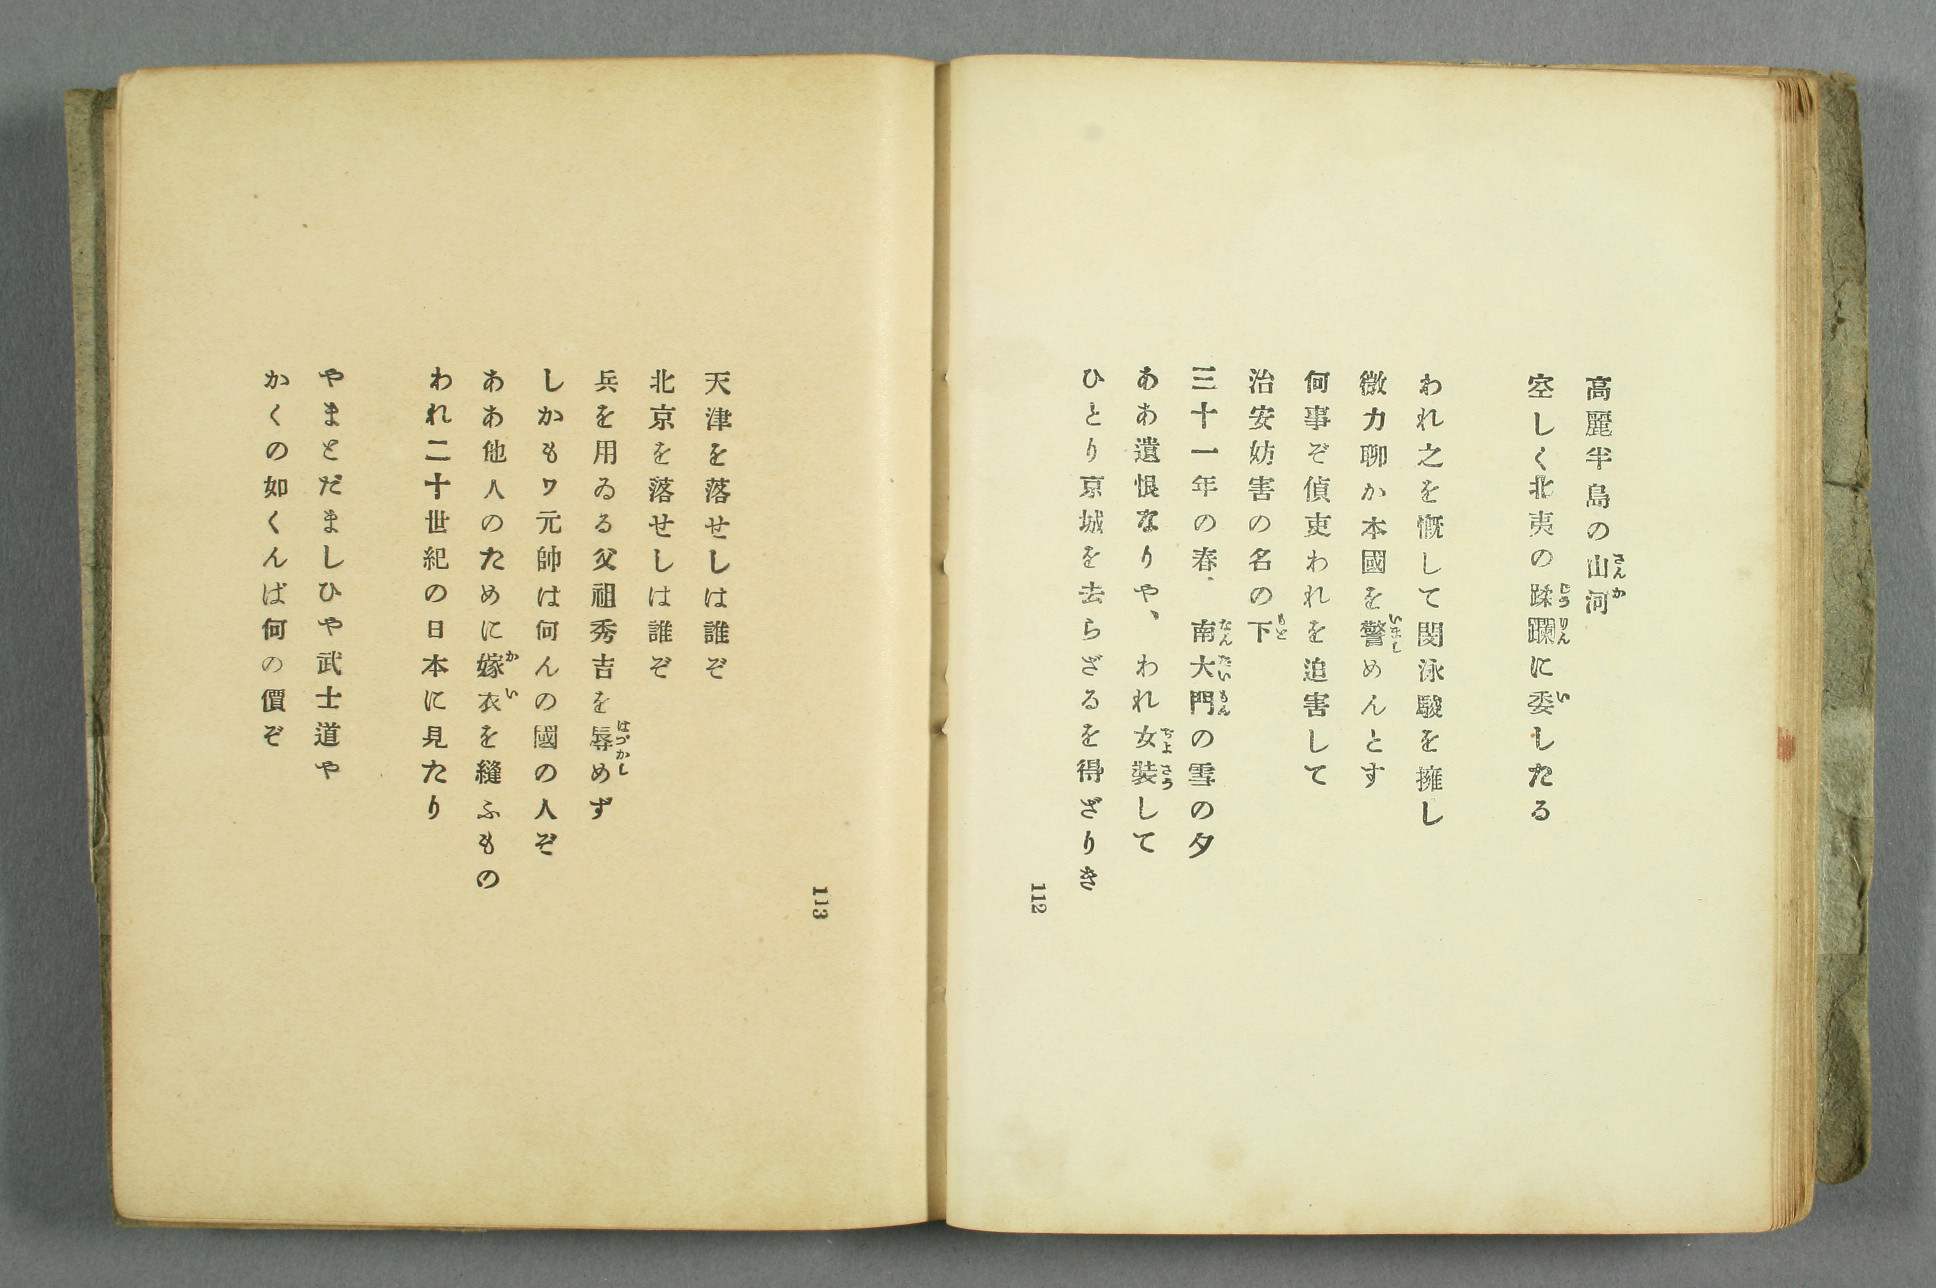 高麗半島の山河
空しく北夷の蹂躙に委したる
われ之を慨して閔泳駿を擁し
微力聊か本國を警めんとす
何事ぞ偵吏われを追害して
治安妨害の名の下
三十一年の春、南大門の雪の夕
ああ遺恨なりや、われ女裝して
ひとり京城を去らざるを得ざりき
112
天津を落せしは誰ぞ
北京を落せしは誰ぞ
兵を用ゐる父祖秀吉を辱めず
しかもワ元帥は何んの國の人ぞ
ああ他人のために嫁衣を縫ふもの
われ二十世紀の日本に見たり
やまとだましひや武士道や
かくの如くんば何の價ぞ
113